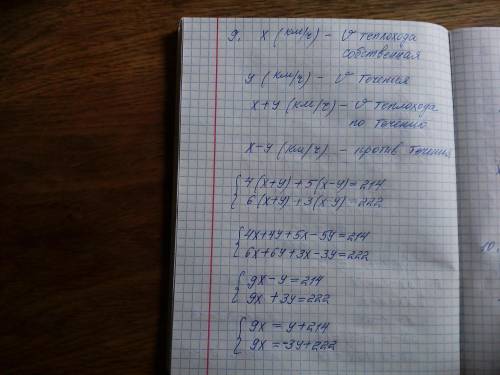 9. x (км/ч) – v теплохода
собственная
y (км/ч) – v течения
x+y (км/ч) – v теплохода
по течению
x–y (км/ч) – против течения
{ 4(x+y)+5(x-y)=214
{ 6(x+y)+3(x-y)=222
{ 4x+4y+5x-5y=214
{ 6x+6y+3x-3y=222
{ 9x-y=214
{ 9x+3y=222
{ 9x=y+214
{ 9x=-3y+222
10.